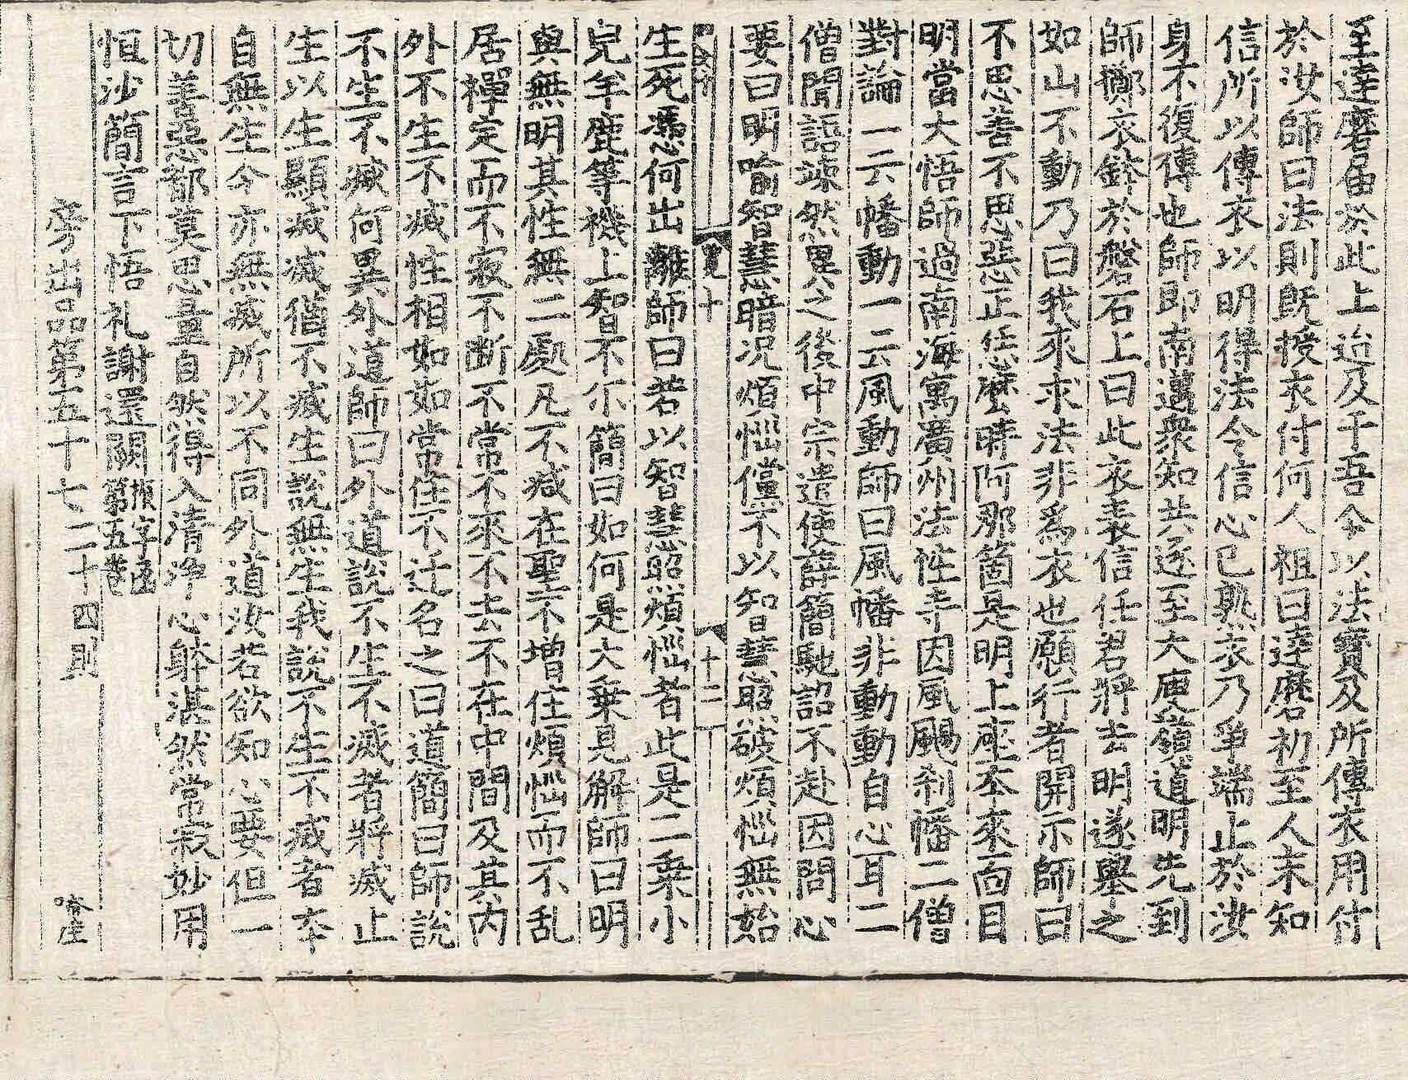 至達磨届於此上迨及于吾今以法寶及所傳衣用付
於汝師曰法則旣授衣付何人祖曰達磨初至人未知
信所以傳衣以明得法今信心已熟衣乃爭端止於汝
身不復傳也師即南邁衆知共逐至大庾嶺道明先到
師擲衣鉢於磐石上曰此衣表信任君將去明遂擧之
如山不動乃曰我來求法非爲衣也願行者開示師曰
不思善不思惡正恁麽時阿那箇是明上座本來面目
明當大悟師過南海寓廣州法性寺因風颺刹幡二僧
對論一云幡動一云風動師曰風幡非動動自心耳二
僧聞語竦然異之後中宗遣使薛簡馳詔不赴因問心
要曰明喻智慧暗况煩惱儻不以智慧照破煩惱無始
十
十二
生死憑何出離師曰若以智慧照煩惱者此是二乘小
兒羊鹿等機上智不尒簡曰如何是大乘見解師曰明
與無明其性無二處凡不减在聖不增住煩惱而不乱
居禪定而不寂不断不常不來不去不在中間及其内
外不生不滅性相如如常住不迁名之曰道簡曰師說
不生不滅何異外道師曰外道說不生不滅者將滅止
生以生顯滅滅猶不滅生說無生我說不生不滅者本
自無生今亦無滅所以不同外道汝若欲知心要但一
切善惡都莫思量自然得入淸淨心躰湛然常寂妙用
恒沙簡言下悟礼謝還闕 楨字函第五卷
旁出品第五十七 二十四則